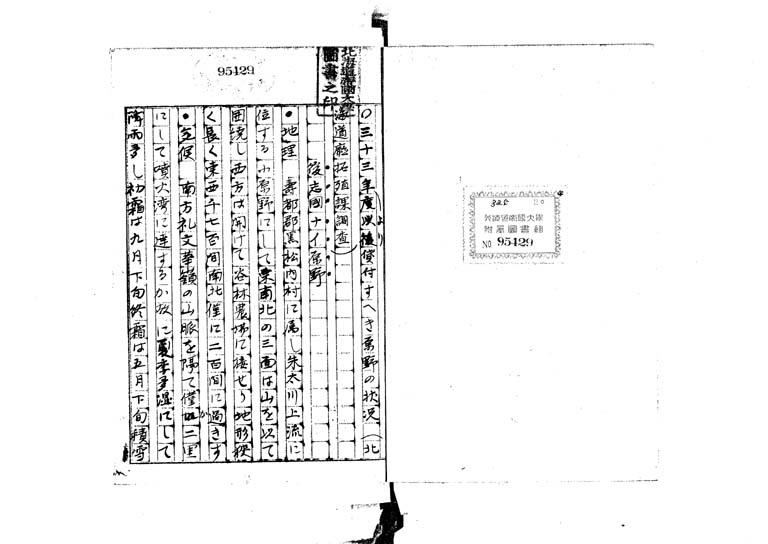 95429
北海道帝國大學
圖書之印
〇三十三年度以後貸付すへき原野の狀况(北
より
海道廳拓殖課調査)
後志國ナイ原野
●地理 壽都郡黒松内村に属し朱太川上流に
位する小原野にして東南北の三面は山を以て
囲繞し西方は開けて谷林農場に接せり地形稍
く長く東西千七百間南北僅に二百間に過きす
●氣候 南方礼文華嶺の山脈を隔て僅か二里
にして噴火湾に達するか故に夏季多湿にして
降雨多し初霜は九月下旬終霜は五月下旬積雪
附屬圖書館
NO 95429